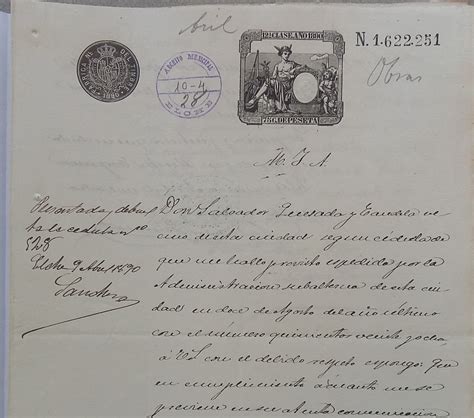 Abril
12ª CLASE. AÑO 1890
N.1.622.251
ARCHIVO MUNICIPAL
10-4
28
ELCHE
75 CS. DE PESETA
Obras
M. I. A.
Don Salvador Quesada y Candela ve-
cino de esta ciudad segun cédula de
que me hallo provisto espedida por la
Administracion subalterna de esta ciu-
dad en doce de Agosto del año último
con el número quinientos veinte y ocho
á VS con el debido respeto espongo: Que
en cumplimiento á cuanto me se
previene en su atenta comunicacion
ta la cedula nº
528
Elche 9 Abril 1890